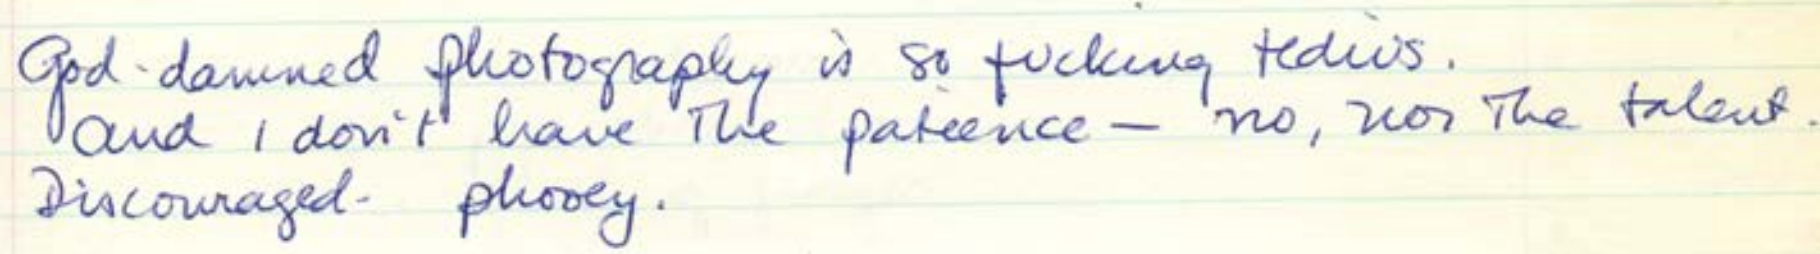 God-damned photography is so fucking tedius.
and I don't have The patience — no, nor The talent.
Discouraged- phooey.